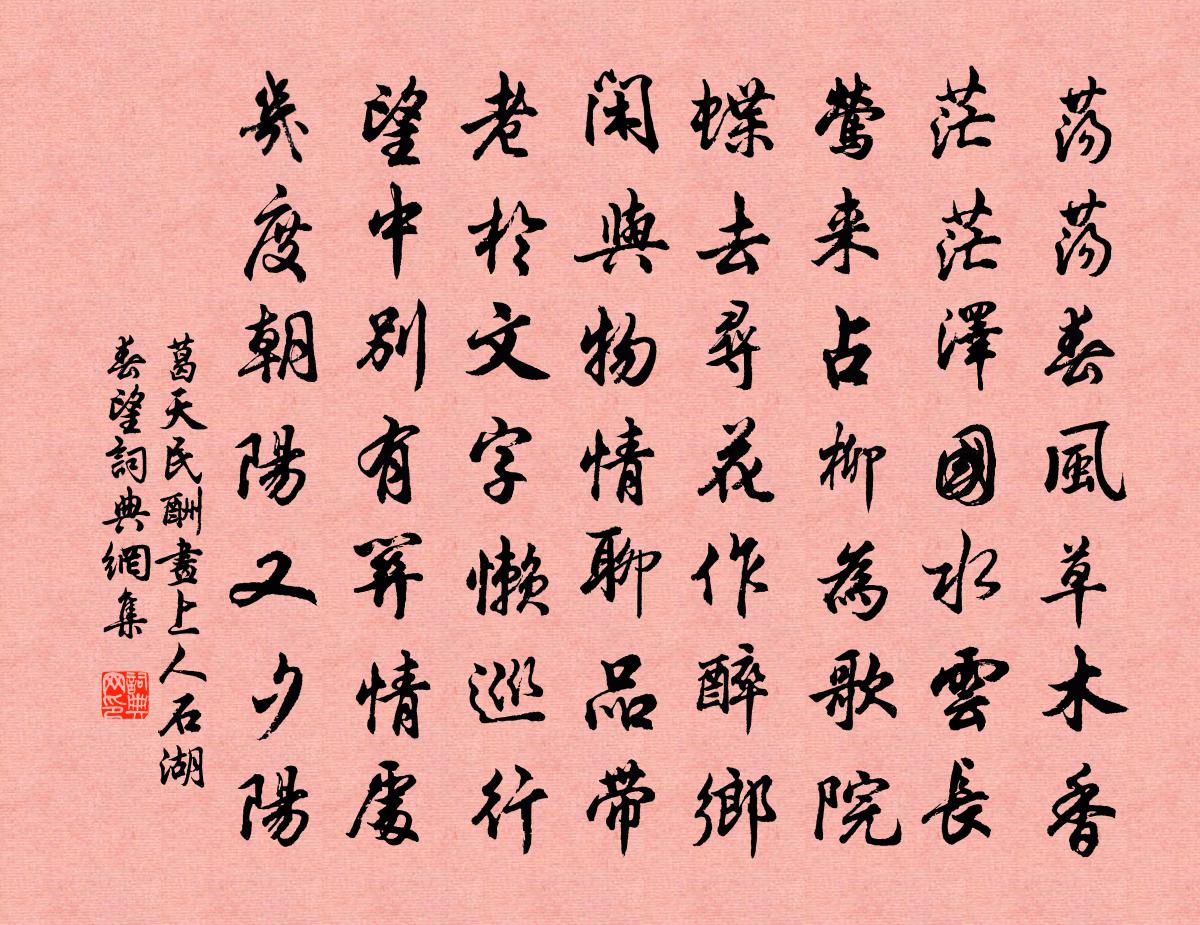 蕩蕩春風草木香
茫茫澤國水雲長
鶯来占柳為歌院
蝶去尋花作醉鄉
閑與物情聊品带
老於文字懶巡行
望中別有關情處
幾度朝陽又夕陽
葛天民酬畫上人石湖
春望詞典網集
詞典网印